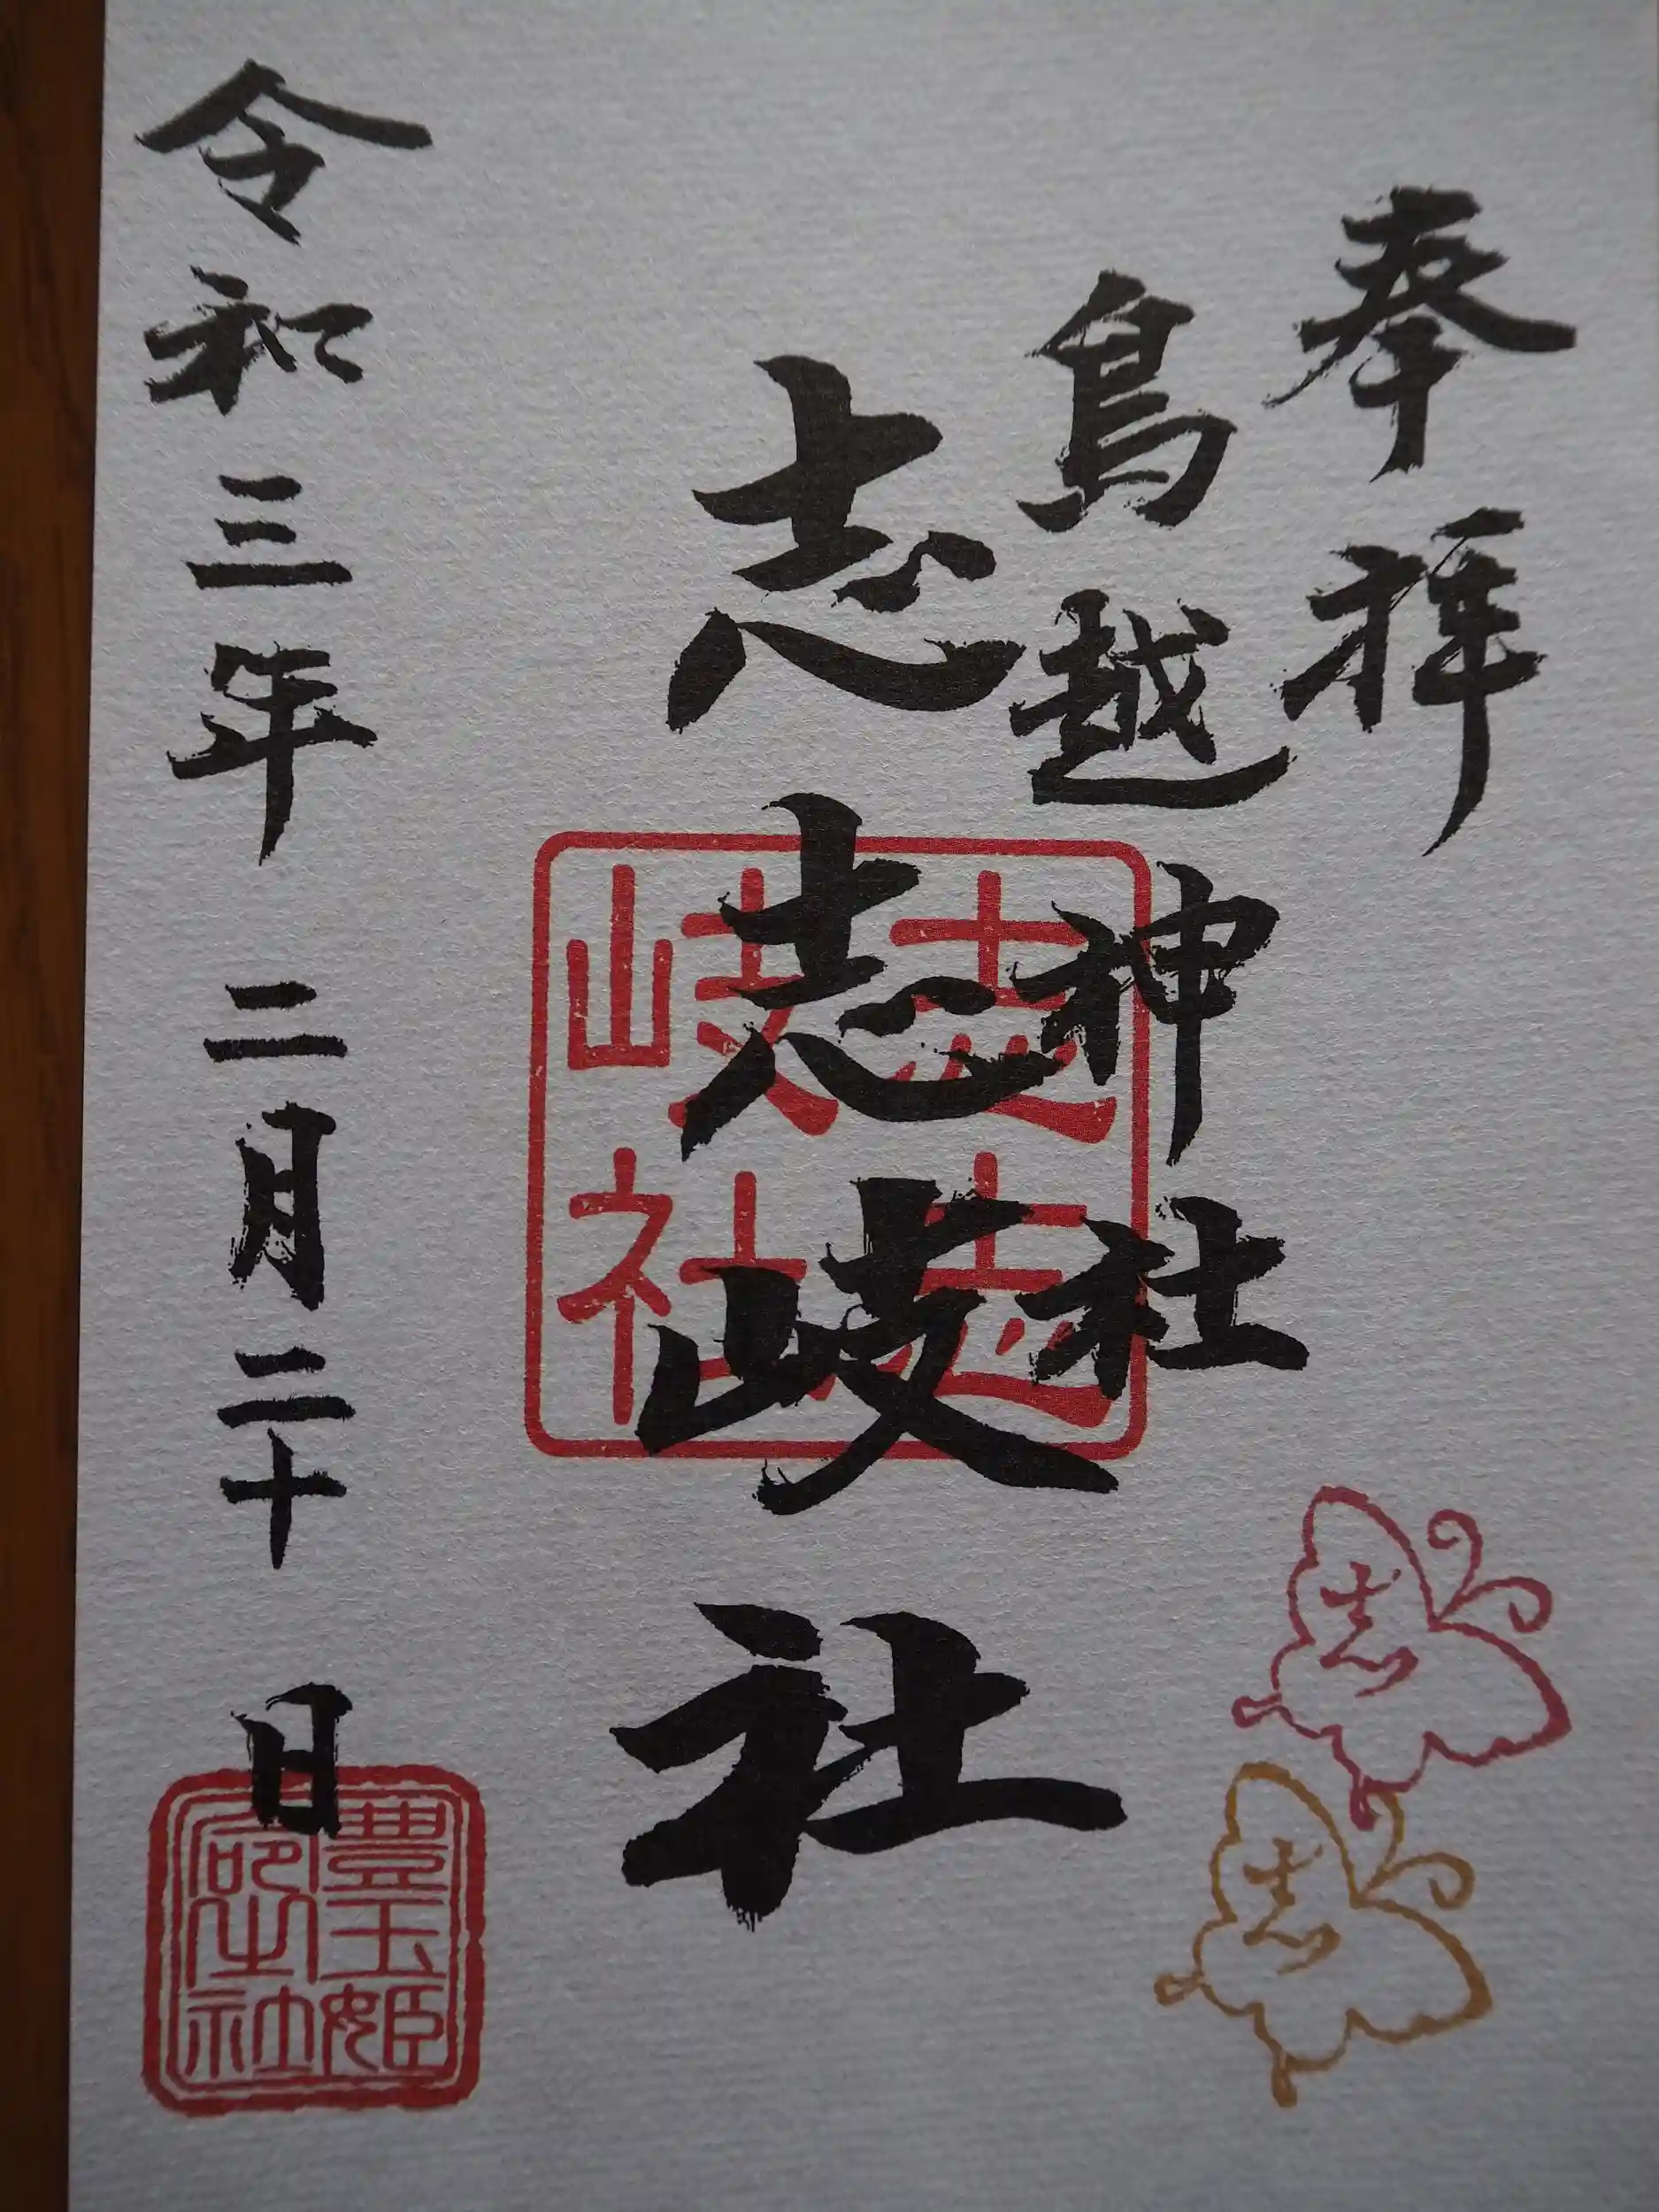 奉拝
鳥越神社
志志岐社
令和三年二月二十日
志志岐社
志
志
豊玉姫
社